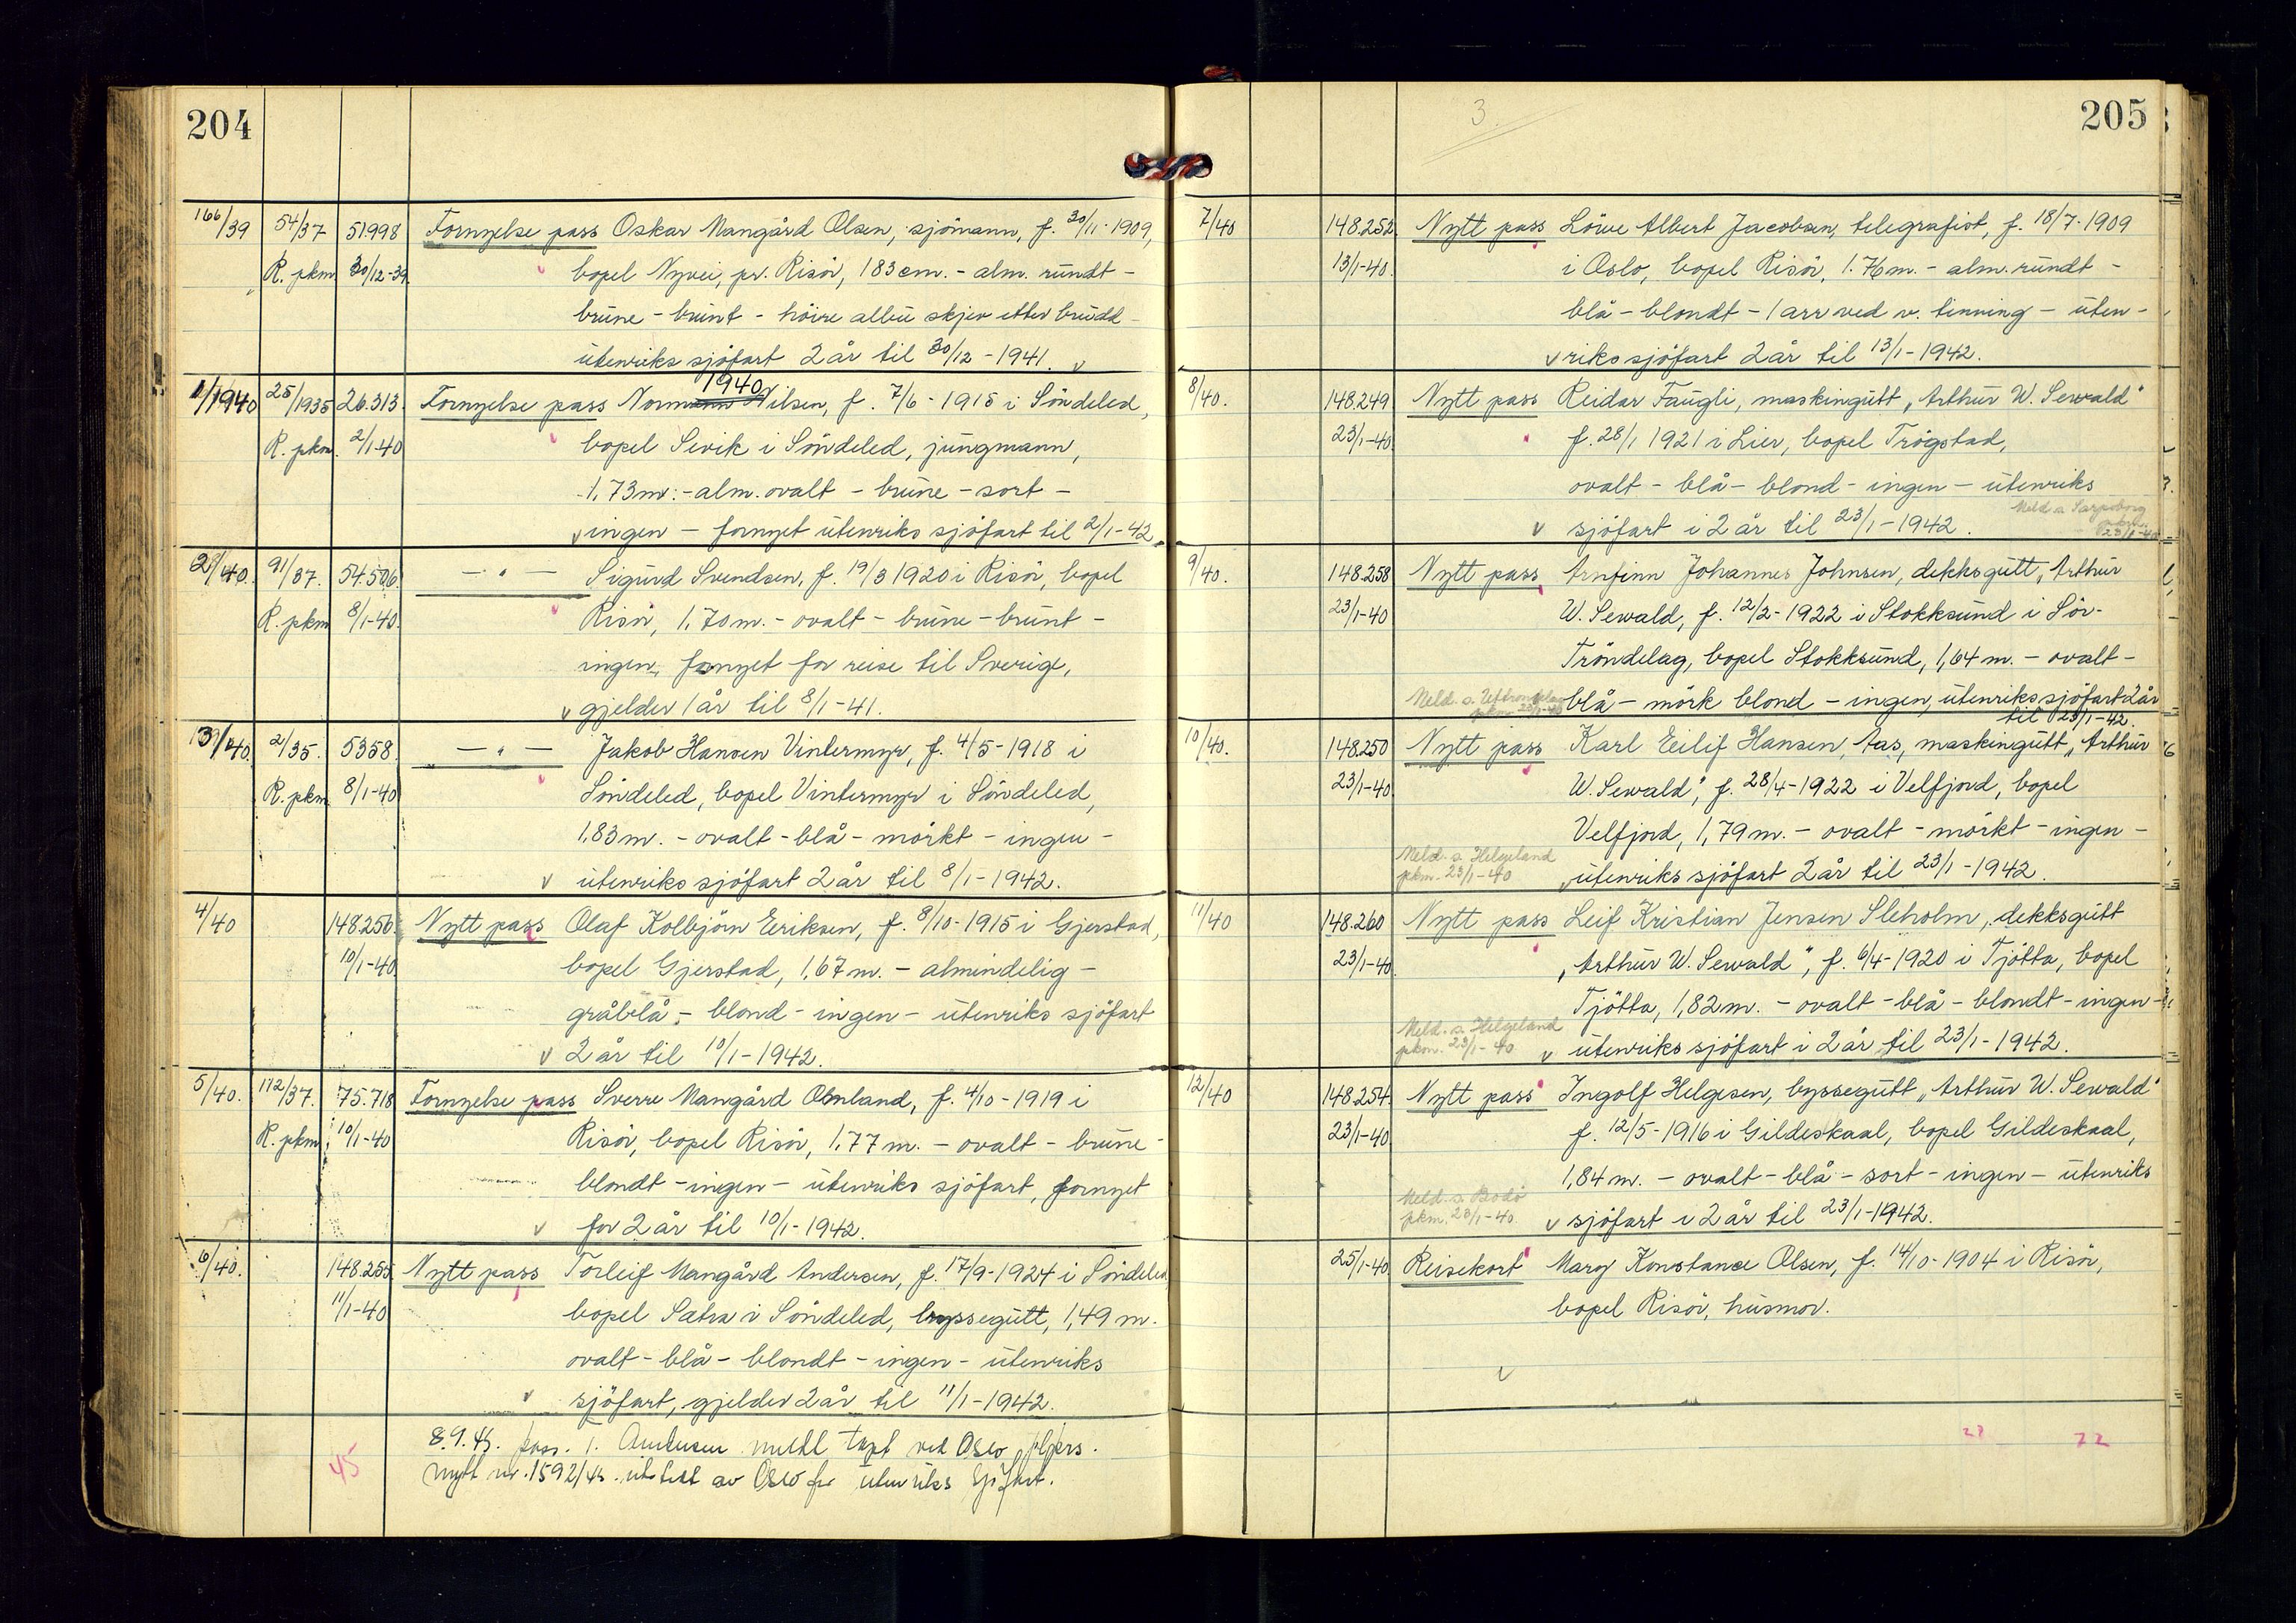 204
166/39 54/37 51998 Fornyelse pass Oskar Mangård Olsen, sjömann, f. 30/11-1909,
R. pkm 30/12-39. bopel Nyvei, pr. Risör, 183 cm. - alm. rundt -
brune - brunt - höire albu skjev etter brudd -
utenriks sjöfart 2 år til 30/12-1941. v
1940
1/1940 25/1935 26.313. Fornyelse pass Normann Nilsen, f. 7/6-1915 i Söndeled,
R. pkm. 2/1-40 bopel Sevik i Söndeled, jungmann,
1,73 m. - alm. ovalt - brune - sort -
v ingen - fornyet utenriks sjöfart til 2/1-42.
2/40. 91/37. 54.506. — " — Sigurd Svendsen, f. 19/3 1920 i Risör, bopel
R. pkm 8/1-40. Risör, 1,70 m. - ovalt - brune - brunt -
ingen, fornyet for reise til Sverige,
v gjelder 1 år til 8/1-41.
3/40. 2/35. 5358. — " — Jakob Hansen Vintermyr, f. 4/5-1918 i
R. pkm 8/1-40 Söndeled, bopel Vintermyr i Söndeled,
1,83 m. - ovalt - blå - mörkt - ingen -
v utenriks sjöfart 2 år til 8/1-1942.
4/40 148.256. Nytt pass Olaf Kolbjörn Eriksen, f. 8/10-1915 i Gjerstad,
10/1-40 bopel Gjerstad, 1,67 m. - almindelig -
gråblå - blond - ingen - utenriks sjöfart
v 2 år til 10/1-1942.
5/40. 112/37. 75.718 Fornyelse pass Sverre Mangård Omland, f. 4/10-1919 i
R. pkm. 10/1-40 Risör, bopel Risör, 1,77 m. - ovalt - brune -
blondt - ingen - utenriks sjöfart, fornyet
v for 2 år til 10/1-1942.
6/40. 148.255 Nytt pass Torleif Mangård Andersen, f. 17/9-1924 i Söndeled
11/1-40 bopel Satra i Söndeled, byssegutt, 1,49 m.
ovalt - blå - blondt - ingen - utenriks
v sjöfart, gjelder 2 år til 11/1-1942.
8.9.45. pass. T. Andersen meldt tapt ved Oslo
45 nytt nr. 1592/45. utstedt av Oslo for utenriks sjöfart.
3. 205
7/40 148.252 Nytt pass Löwe Albert Jacobsen, telegrafist, f. 18/7-1909
13/1-40. i Oslo, bopel Risör, 1.76 m. - alm. rundt -
blå - blondt - 1 arr ved v. tinning - uten-
v riks sjöfart 2 år til 13/1-1942.
8/40. 148.249 Nytt pass Reidar Faugli, maskingutt „Arthur W. Sewald"
23/1-40. f. 28/1 1921 i Lier, bopel Trögstad,
ovalt - blå - blond - ingen - utenriks
v sjöfart i 2 år til 23/1-1942. Meld. a. Sarpsborg
pkm. 23/1-40
9/40. 148.258 Nytt pass Arnfinn Johannes Johnsen, dekksgutt „Arthur
23/1-40 W. Sewald, f. 12/2-1922 i Stokksund i Sör-
Tröndelag, bopel Stokksund, 1,64 m. - ovalt -
Meld. a.
pkm. 23/1-40 blå - mörk blond - ingen, utenriks sjöfart 2 år
til 23/1-42.
10/40. 148.250 Nytt pass Karl Eilif Hansen Aas, maskingutt „Arthur
23/1-40. W. Sewald", f. 28/4-1922 i Velfjord, bopel
Velfjord, 1,79 m. - ovalt - mörkt - ingen -
Meld. a. Helgeland
pkm. 23/1-40 v utenriks sjöfart 2 år til 23/1-1942.
11/40 148.260 Nytt pass Leif Kristian Jensen Sleholm, dekksgutt
23/1-40. „Arthur W. Sewald", f. 6/4-1920 i Tjötta, bopel
Tjötta, 1,82 m. - ovalt - blå - blondt - ingen -
Meld. a. Helgeland
pkm. 23/1-40 v utenriks sjöfart i 2 år til 23/1-1942.
12/40 148.254. Nytt pass Ingolf Helgesen, byssegutt „Arthur W. Sewald"
23/1-40 f. 12/5-1916 i Gildeskaal, bopel Gildeskaal,
1,84 m. - ovalt - blå - sort - ingen - utenriks
Meld. a. Bodö
pkm. 23/1-40 v sjöfart i 2 år til 23/1-1942.
25/1-40 Reisekort Mary Konstanse Olsen, f. 14/10-1904 i Risör,
bopel Risör, husmor.
v
72